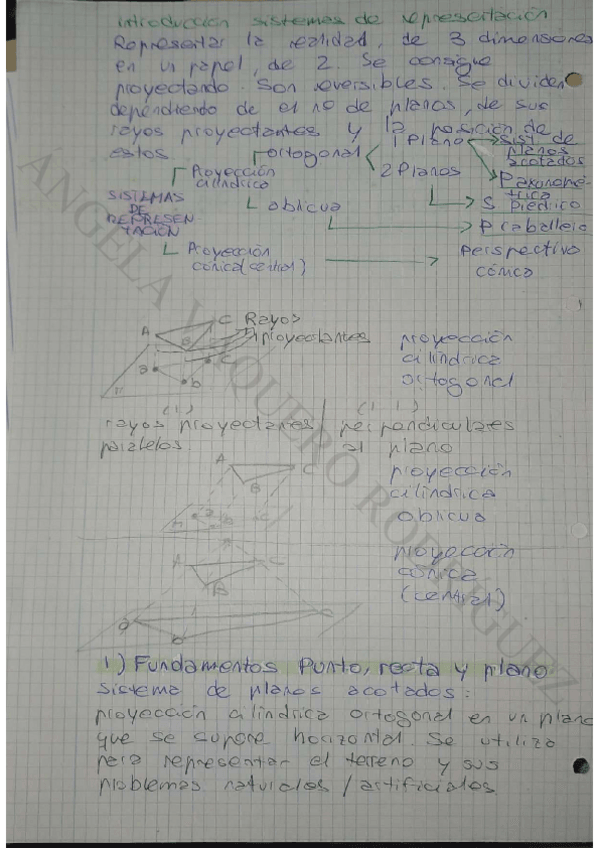 introducción sistemas de representación
Representar la realidad, de 3 dimensiones
en un papel, de 2. Se consigue
proyectando. Son reversibles. Se dividen
dependiendo de el no de planos, de sus
rayos proyectantes y la posición de
estos
ortogonal
1 Plano
Sist de
planos
acotados
Proyección
cilíndrica
2 Planos
P axonomé-
trica
SISTEMAS
DE
REPRESEN-
TACIÓN
oblicua
S diédrico
P caballera
Proyección
cónica (central)
perspectiva
cónica
A
C
B
Rayos
proyectantes
a
c
b
π
proyección
cilíndrica
ortogonal
rayos proyectantes / perpendiculares
paralelos
al plano
A
C
B
proyección
cilíndrica
oblicua
A
C
B
proyección
cónica
(central)
1) Fundamentos Punto, recta y plano
Sistema de planos acotados:
proyección cilíndrica ortogonal en un plano
que se supone horizontal. Se utiliza
para representar el terreno y sus
problemas naturales / artificiales
ANGELA VAQUERO RODRÍGUEZ